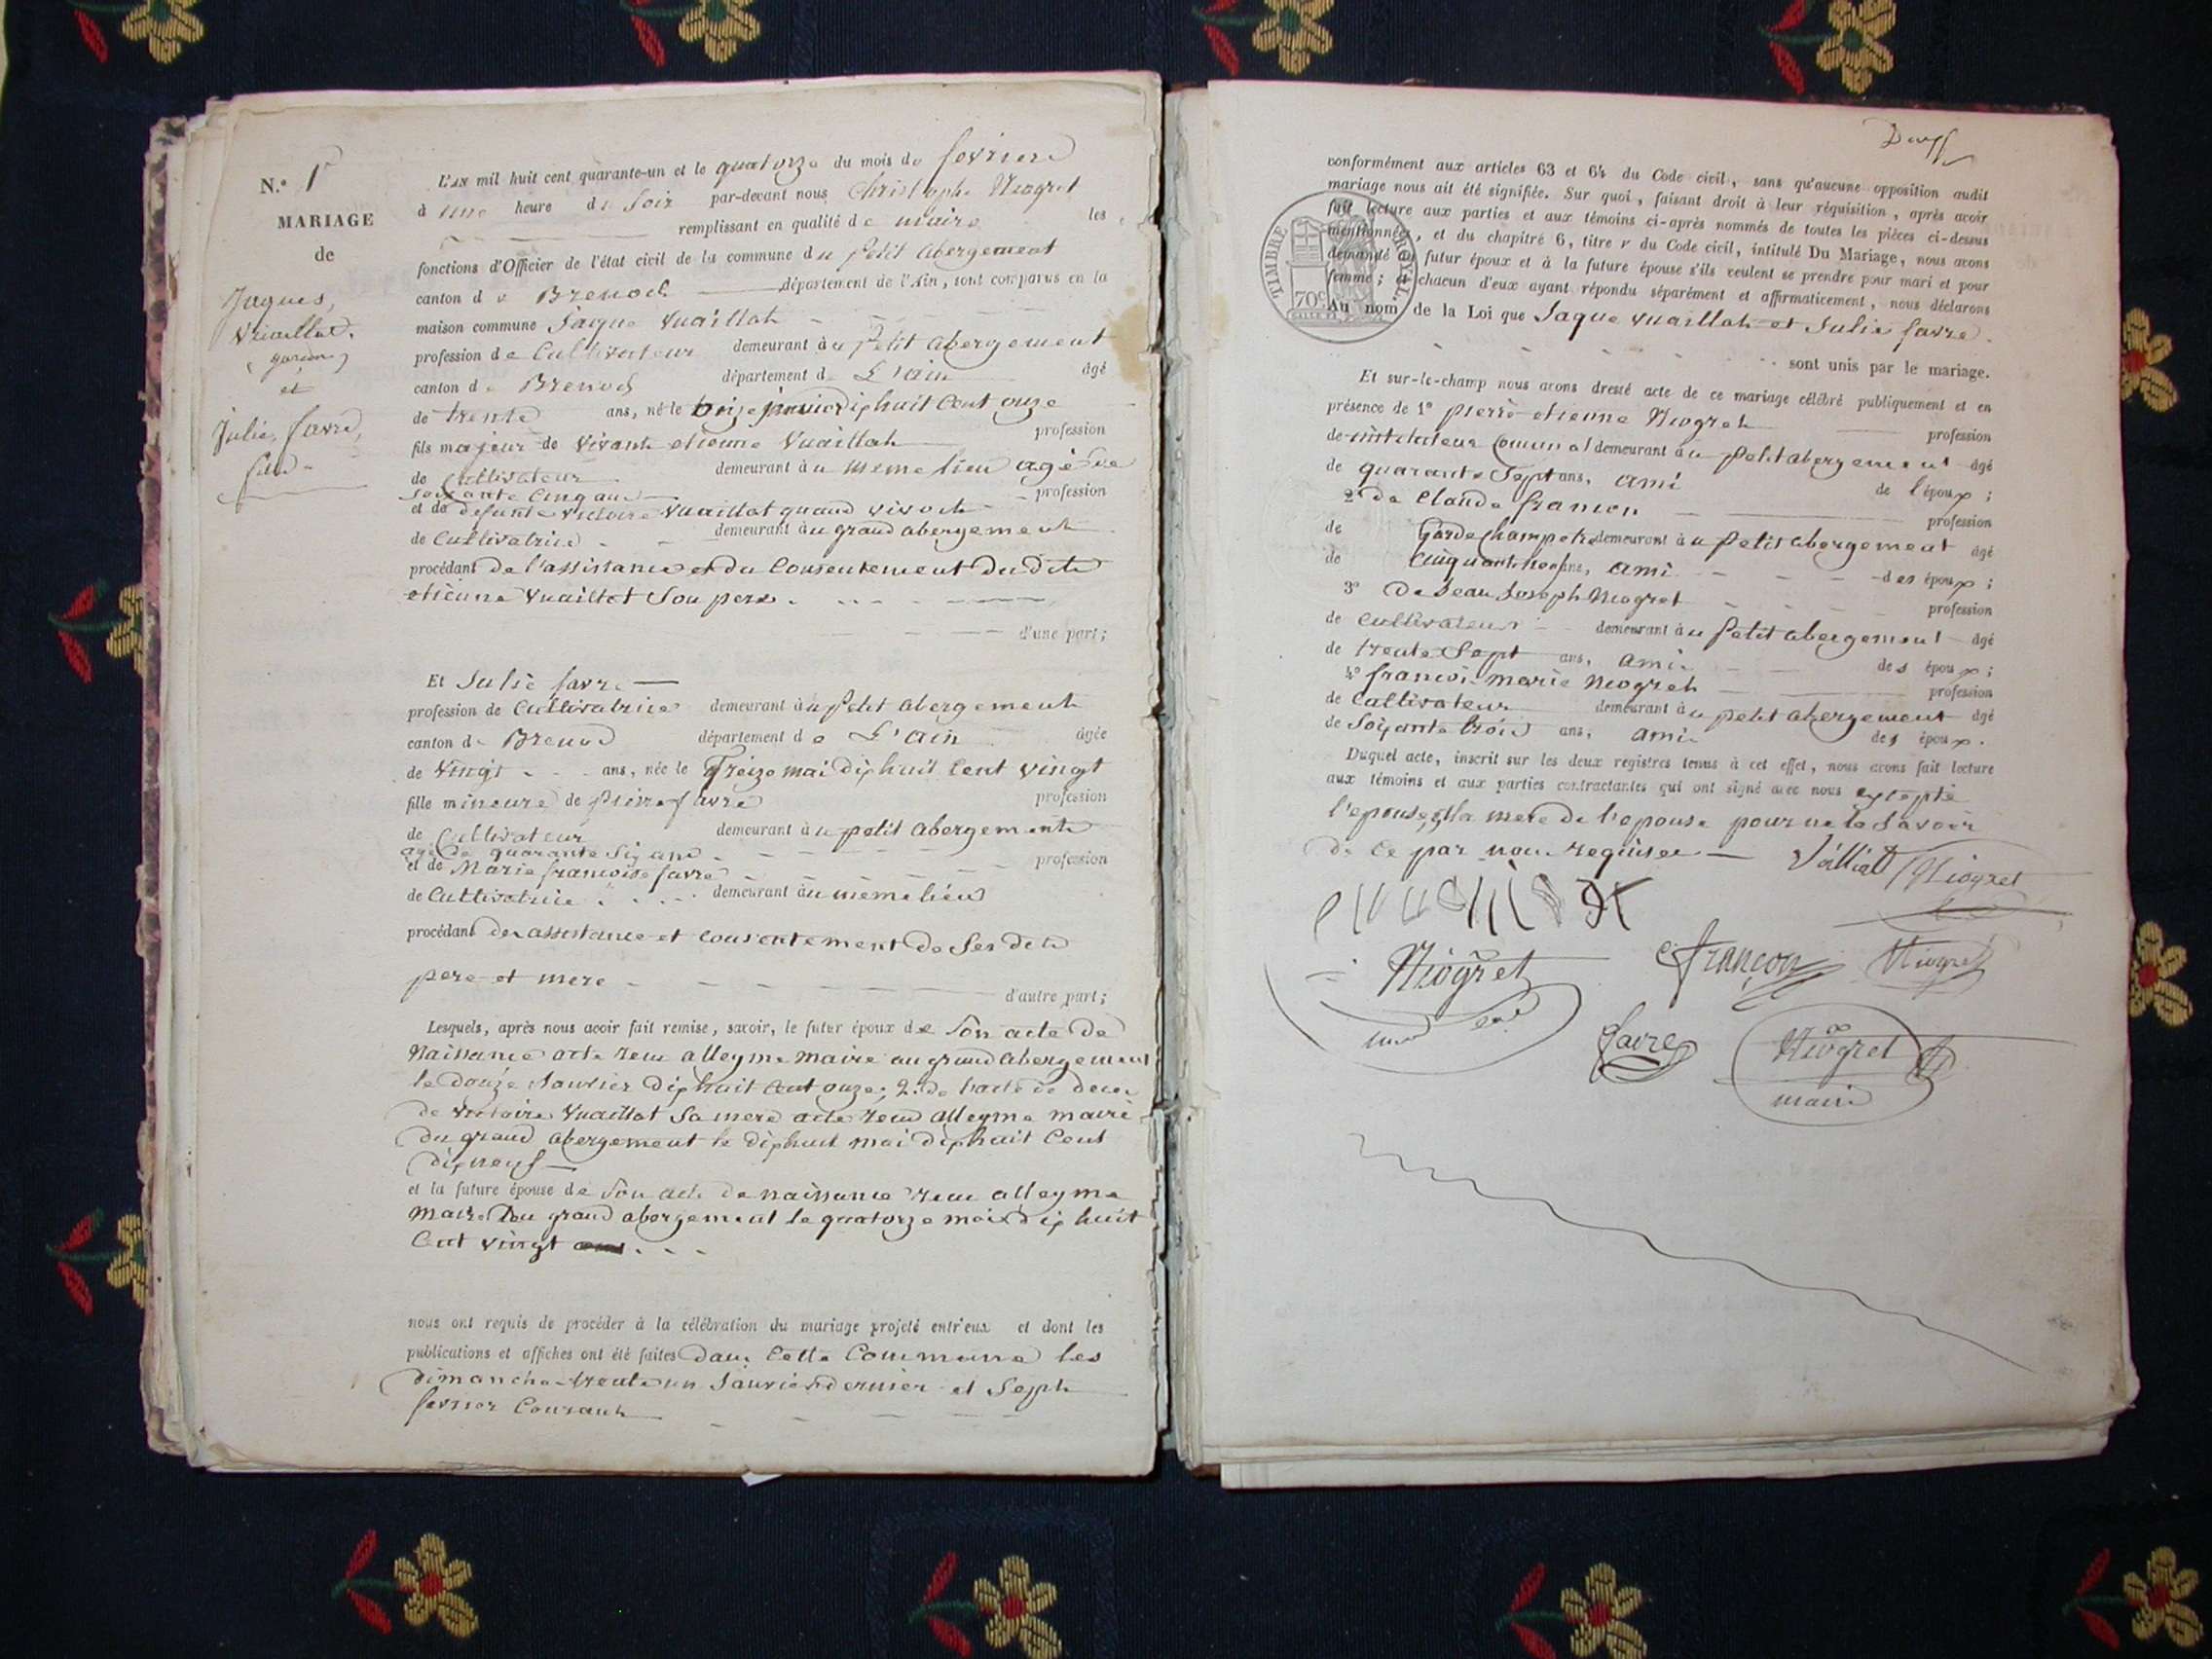 N.° 1
MARIAGE
de
Jaques,
Vuaillat,
(garçon)
et
Julie, favre,
fille
L'an mil huit cent quarante-un et le quatorze du mois de fevrier
à une heure du Soir par-devant nous Christophe Niogret
remplissant en qualité de maire les
fonctions d'Officier de l'état civil de la commune du petit abergement
canton de Brenod département de l'Ain, sont comparus en la
maison commune Jaque Vuaillat
profession de Cultivateur demeurant au petit abergement
canton de Brenod département de L'ain âgé
de trente ans, né le onze janvier dix huit Cent onze
fils majeur de vivant etienne Vuaillat profession
de Cultivateur demeurant au meme lieu agé de
soixante Cinq ans
et de defunte victoire Vuaillat quand vivoit profession
de Cultivatrice demeurant au grand abergement
procédant de l'assistance et du Consentement du dit
etienne Vuaillat Son pere
d'une part;
Et Julie favre
profession de Cultivatrice demeurant au petit abergement
canton de Brenod département de L'ain âgée
de vingt ans, née le Treize mai dix huit Cent vingt
fille mineure de pierre favre profession
de Cultivateur demeurant au petit abergement
agé de quarante Six ans
et de Marie françoise favre profession
de Cultivatrice demeurant au même lieu
procédant de assistance et consentement de Ses dits
pere et mere
d'autre part;
Lesquels, après nous avoir fait remise, savoir, le futur époux de Son acte de
Naissance acte reçu alleyme maire au grand abergement
le douze Janvier dix huit Cent onze; 2° de l'acte de deces
de victoire Vuaillat Sa mere acte reçu alleyme maire
du grand abergement le dix huit mai dix huit Cent
dix neuf
et la future épouse de Son acte de naissance reçu alleyme
maire du grand abergement le quatorze mai dix huit
Cent vingt
nous ont requis de procéder à la célébration du mariage projeté entr'eux et dont les
publications et affiches ont été faites dans Cette Commune les
dimanche trente un Janvier dernier et Sept
fevrier Courant
conformément aux articles 63 et 64 du Code civil, sans qu'aucune opposition audit
mariage nous ait été signifiée. Sur quoi, faisant droit à leur réquisition, après avoir
fait lecture aux parties et aux témoins ci-après nommés de toutes les pièces ci-dessus
mentionnées, et du chapitre 6, titre v du Code civil, intitulé Du Mariage, nous avons
demandé au futur époux et à la future épouse s'ils veulent se prendre pour mari et pour
femme; et chacun d'eux ayant répondu séparément et affirmativement, nous déclarons
TIMBRE ROYAL
70c
Au nom de la Loi que Jaque Vuaillat et Julie favre
sont unis par le mariage.
Et sur-le-champ nous avons dressé acte de ce mariage célébré publiquement et en
présence de 1° pierre etienne Niogret profession
de instituteur Comunal demeurant au petit abergement âgé
de quarante Sept ans, ami de l'époux;
2° de Claude françon profession
de Garde Champetre demeurant au petit abergement âgé
de Cinquante neuf ans, ami des époux;
3° de Jean Joseph Niogret profession
de Cultivateur demeurant au petit abergement âgé
de trente Sept ans, ami des époux;
4° françoi marie Niogret profession
de Cultivateur demeurant au petit abergement âgé
de Soixante trois ans, ami des époux.
Duquel acte, inscrit sur les deux registres tenus à cet effet, nous avons fait lecture
aux témoins et aux parties contractantes qui ont signé avec nous excepté
l'epouse, et la mere de l'epouse pour ne le Savoir
de Ce par nous requises
Vuilliat Niogret
Niogret françon Niogret
favre Niogret
maire